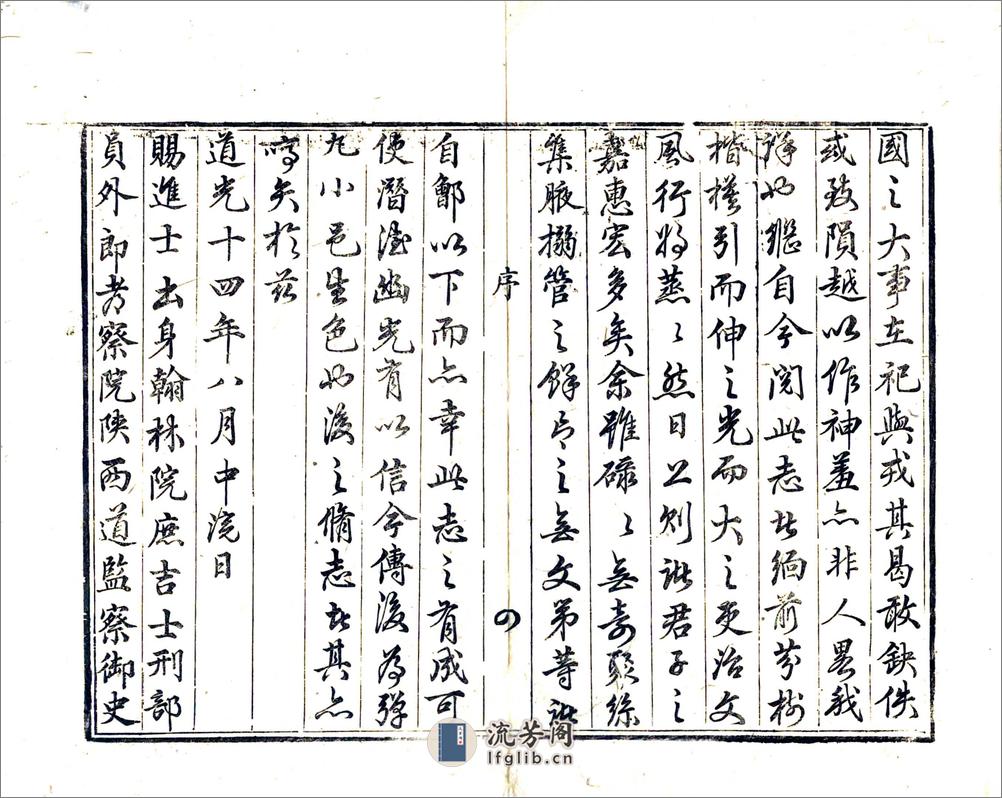 國之大事在祀與戎其曷敢缺佚
或致隕越以作神羞亦非人畏哉
詳也繼自今閱此志者緬前芬樹
楷模引而伸之光而大之吏治文
風行將蒸〻然日上則諸君子之
嘉惠宏多矣余雖碌〻無奇聚綜
集腋搦管之餘片之無文第等諸
序 四
自鄶以下而亦幸此志之有成可
使潛德幽光有以信今傳後為彈
丸小邑生色也後之脩志者其亦
嚆矢於茲
道光十四年八月中浣日
賜進士出身翰林院庶吉士刑部
員外郎考察院陝西道監察御史
流芳阁
lfglib.cn